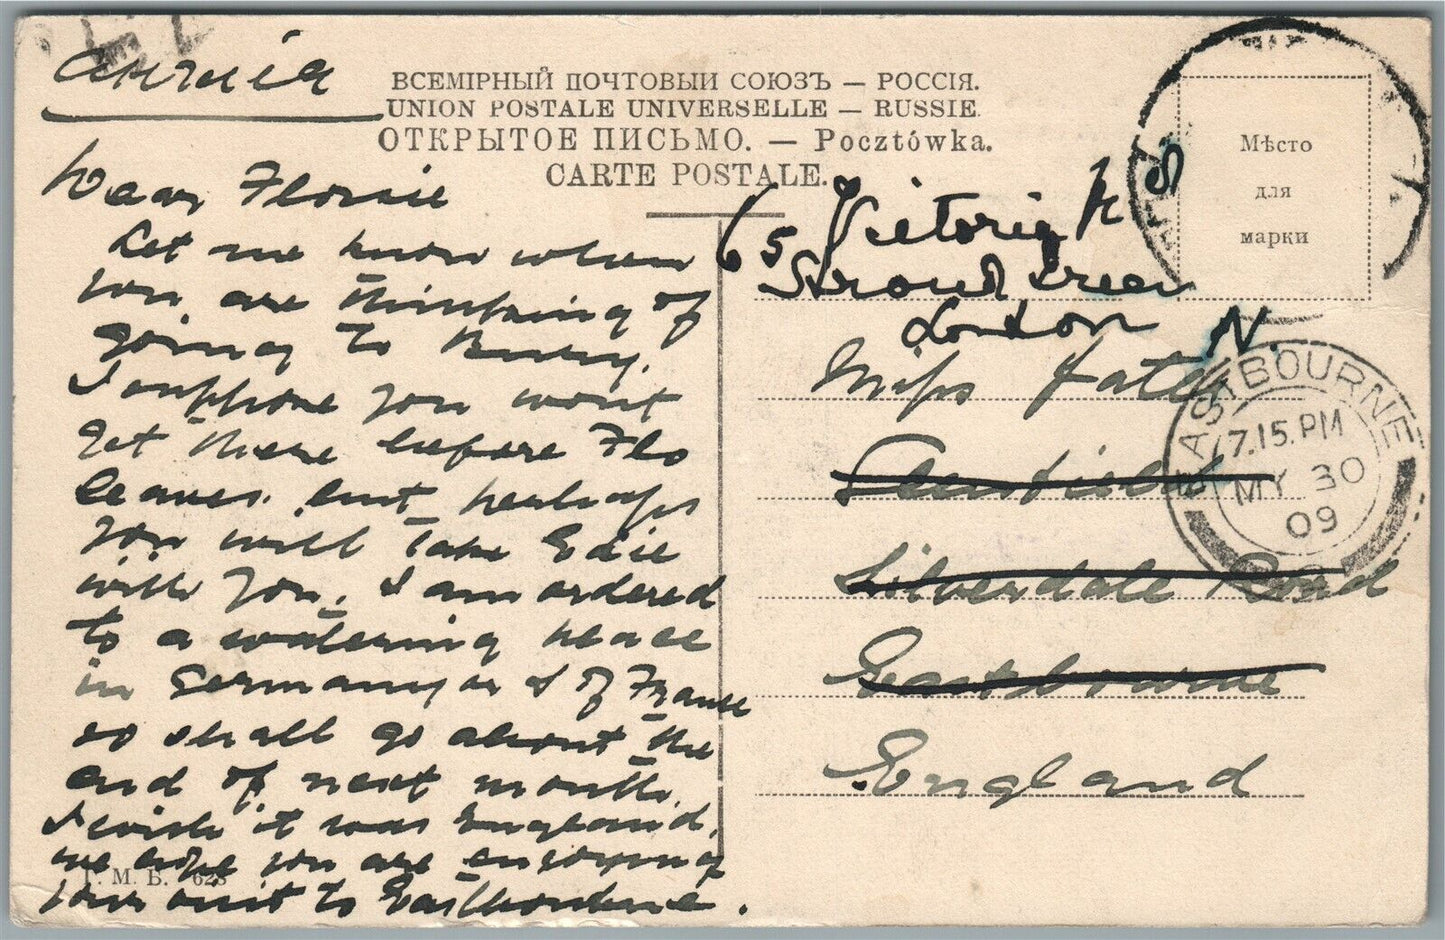 Англія
ВСЕМІРНЫЙ ПОЧТОВЫЙ СОЮЗЪ — РОССІЯ.
UNION POSTALE UNIVERSELLE — RUSSIE.
ОТКРЫТОЕ ПИСЬМО. — Pocztówka.
CARTE POSTALE.
Мѣсто
для
марки
Dear Florrie
Let me know when
you are thinking of
going to
I suppose you wont
get there before Flo
leaves. but perhaps
you will take Edie
with you. I am ordered
to a watering place
in Germany or S of France
so shall go about the
end of next month.
I wish it was England.
we hope you are enjoying
your visit to Eastbourne.
Г. М. Б. 623
65 Victoria
Stroud Green
London N.
Miss
Silverdale Road
Eastbourne
England
EASTBOURNE
7.15.PM
MY 30
09